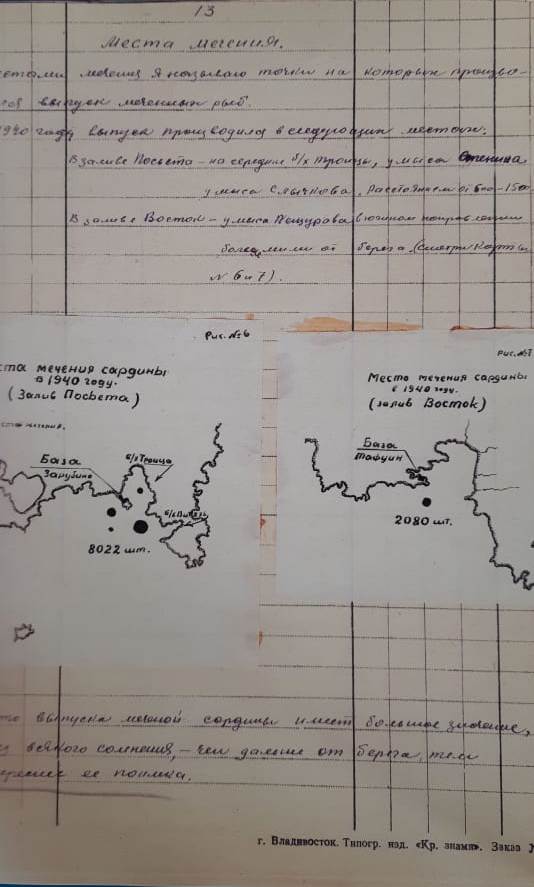 13
Места мечения.
етами мечения я называю точки на которых произво-
ся выпуск меченных рыб.
1940 году выпуск производился в следующих местах.
В заливе Посьета - на середине б/х Троицы, у мыса Стенина
у мыса Слычкова, расстоянием от 500-1500
В заливе Восток - у мыса Пещурова в южном направлении
мили от берега (смотри карты
N 6 и 7).
Рис. №6
ста мечения сардины
в 1940 году.
(Залив Посьета)
места мечения.
б/х Троица
База
Зарубино
8022 шт.
Рис. №7
Место мечения сардины
в 1940 году.
(залив Восток)
База
Тафуин
2080 шт.
то выпуска меченой сардины имеет большое значение,
ез всякого сомнения, - чем дальше от берега, тем
ее поимка.
г. Владивосток. Типогр. изд. «Кр. знамя». Заказ №